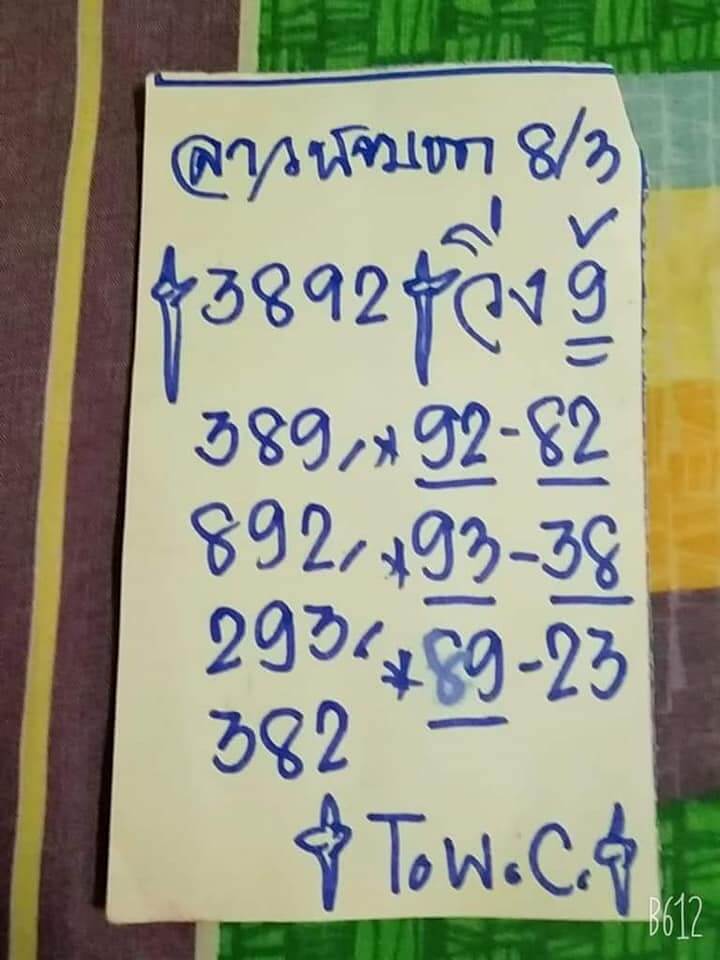 ลาวพัฒนา 8/3
3892 วิ่ง 9
389, *92-82
892, *93-38
293, *89-23
382
T.W.C.
B612